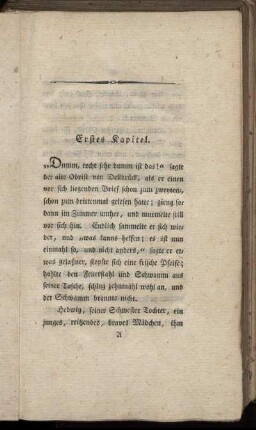 Erstes Kapitel.
„Dumm, recht sehr dumm ist das!“ sagte
der alte Obrist von Dellbrück, als er einen
vor sich liegenden Brief schon zum zweyten,
schon zum drittenmal gelesen hatte; gieng so
dann im Zimmer umher, und murmelte still
vor sich hin. Endlich sammelte er sich wie-
der, und „was kanns helfen; es ist nun
einmahl so, und nicht anders,“ sagte er et-
was gelaßner, stopfte sich eine frische Pfeife;
hohlte den Feuerstahl und Schwamm aus
seiner Tasche, schlug zehnmahl wohl an, und
der Schwamm brennte nicht.
Hedwig, seiner Schwester Tochter, ein
junges, reitzendes, braves Mädchen, ihm
A